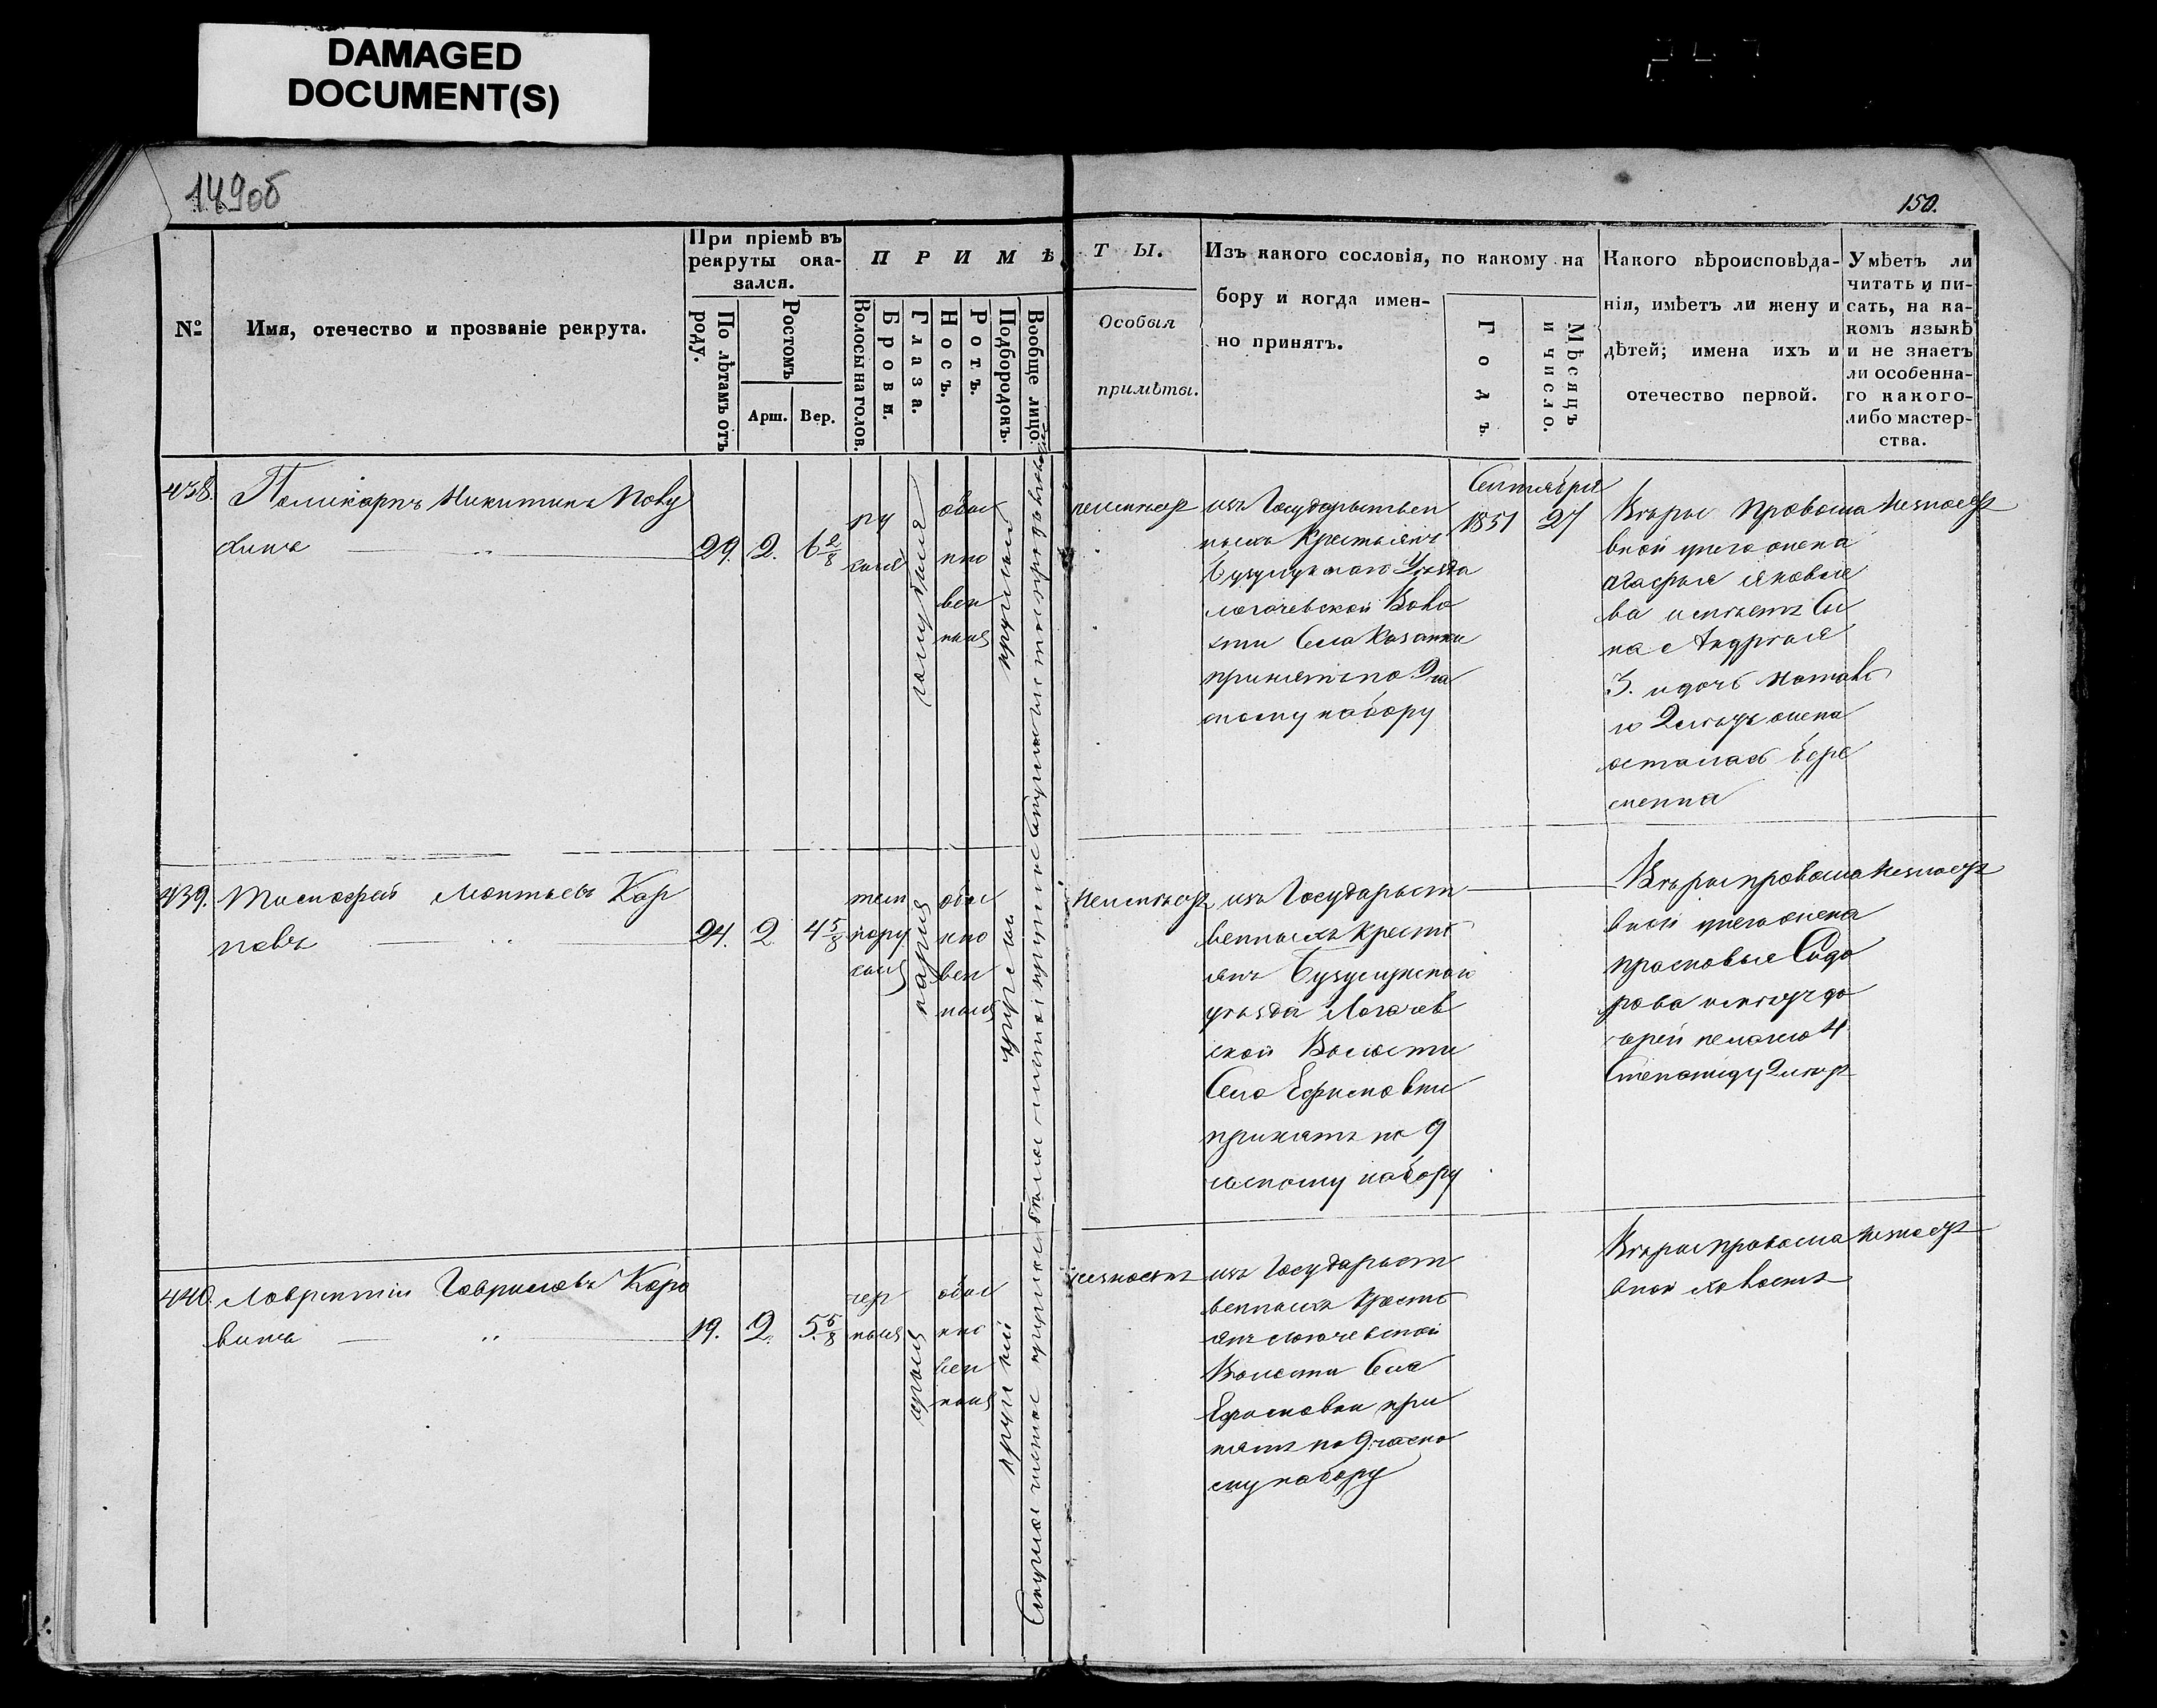 DAMAGED
DOCUMENT(S)
149об
150.
№
Имя, отечество и прозваніе рекрута.
При пріемѣ въ
рекруты ока-
зался.
По лѣтамъ отъ
роду.
Ростомъ
Арш.
Вер.
П Р И М Ѣ
Т Ы.
Волосы на голов.
Брови.
Глаза.
Носъ.
Ротъ.
Подбородокъ.
Вообще лицо.
Особыя
примѣты.
Изъ какого сословія, по какому на
бору и когда имен-
но принятъ.
Годъ
Мѣсяцъ
и число.
Какого вѣроисповѣда-
нія, имѣетъ ли жену и
дѣтей; имена ихъ и
отечество первой.
Умѣетъ ли
читать и пи-
сать, на ка-
комъ языкѣ
и не знаетъ
ли особенна-
го какого-
либо мастер-
ства.
438.
Поликарпъ Никитинъ
29.
2.
6 2/8
ру
сыя
голубыя
обык
но
вен
ныя
круглый
неимѣетъ
изъ Государствен
ныхъ Крестьянъ
Бузулукскаго Уѣзда
Логачевской Воло
сти Села Казанки
принятъ по 9 ча
стному набору
Сентября
1851
27
Вѣры Правосла
вной у него жена
Яковле
ва имѣетъ Сы
на Андрея
3. и дочь Наталь
ю 2 лѣтъ жена
осталась бере
менна
незнаетъ
439.
Тимофей Леонтьевъ Кар
повъ
24.
2
4 5/8
тем
нору
сыя
карія
обык
но
вен
ныя
круглый
Неимѣетъ
изъ Государст
венныхъ Кресть
янъ Бузулукскаго
уѣзда Логачев
ской Волости
Села Ефимовки
принятъ по 9
частному набору
Вѣры правосла
вной у него жена
Прасковья Сидо
рова имѣетъ до
черей Пелагею 4
Степаниду 2 лѣтъ
Незнаетъ
440.
Лаврентій Гавриловъ Каро
винъ
19.
2.
5 5/8
чер
ныя
сѣрыя
обык
но
вен
ныя
круглый
изъ Государст
венныхъ Кресть
янъ Логачевской
Волости Села
Ефимовки при
нятъ по 9 частно
му набору
Вѣры правосла
вной холостъ
Незнаетъ